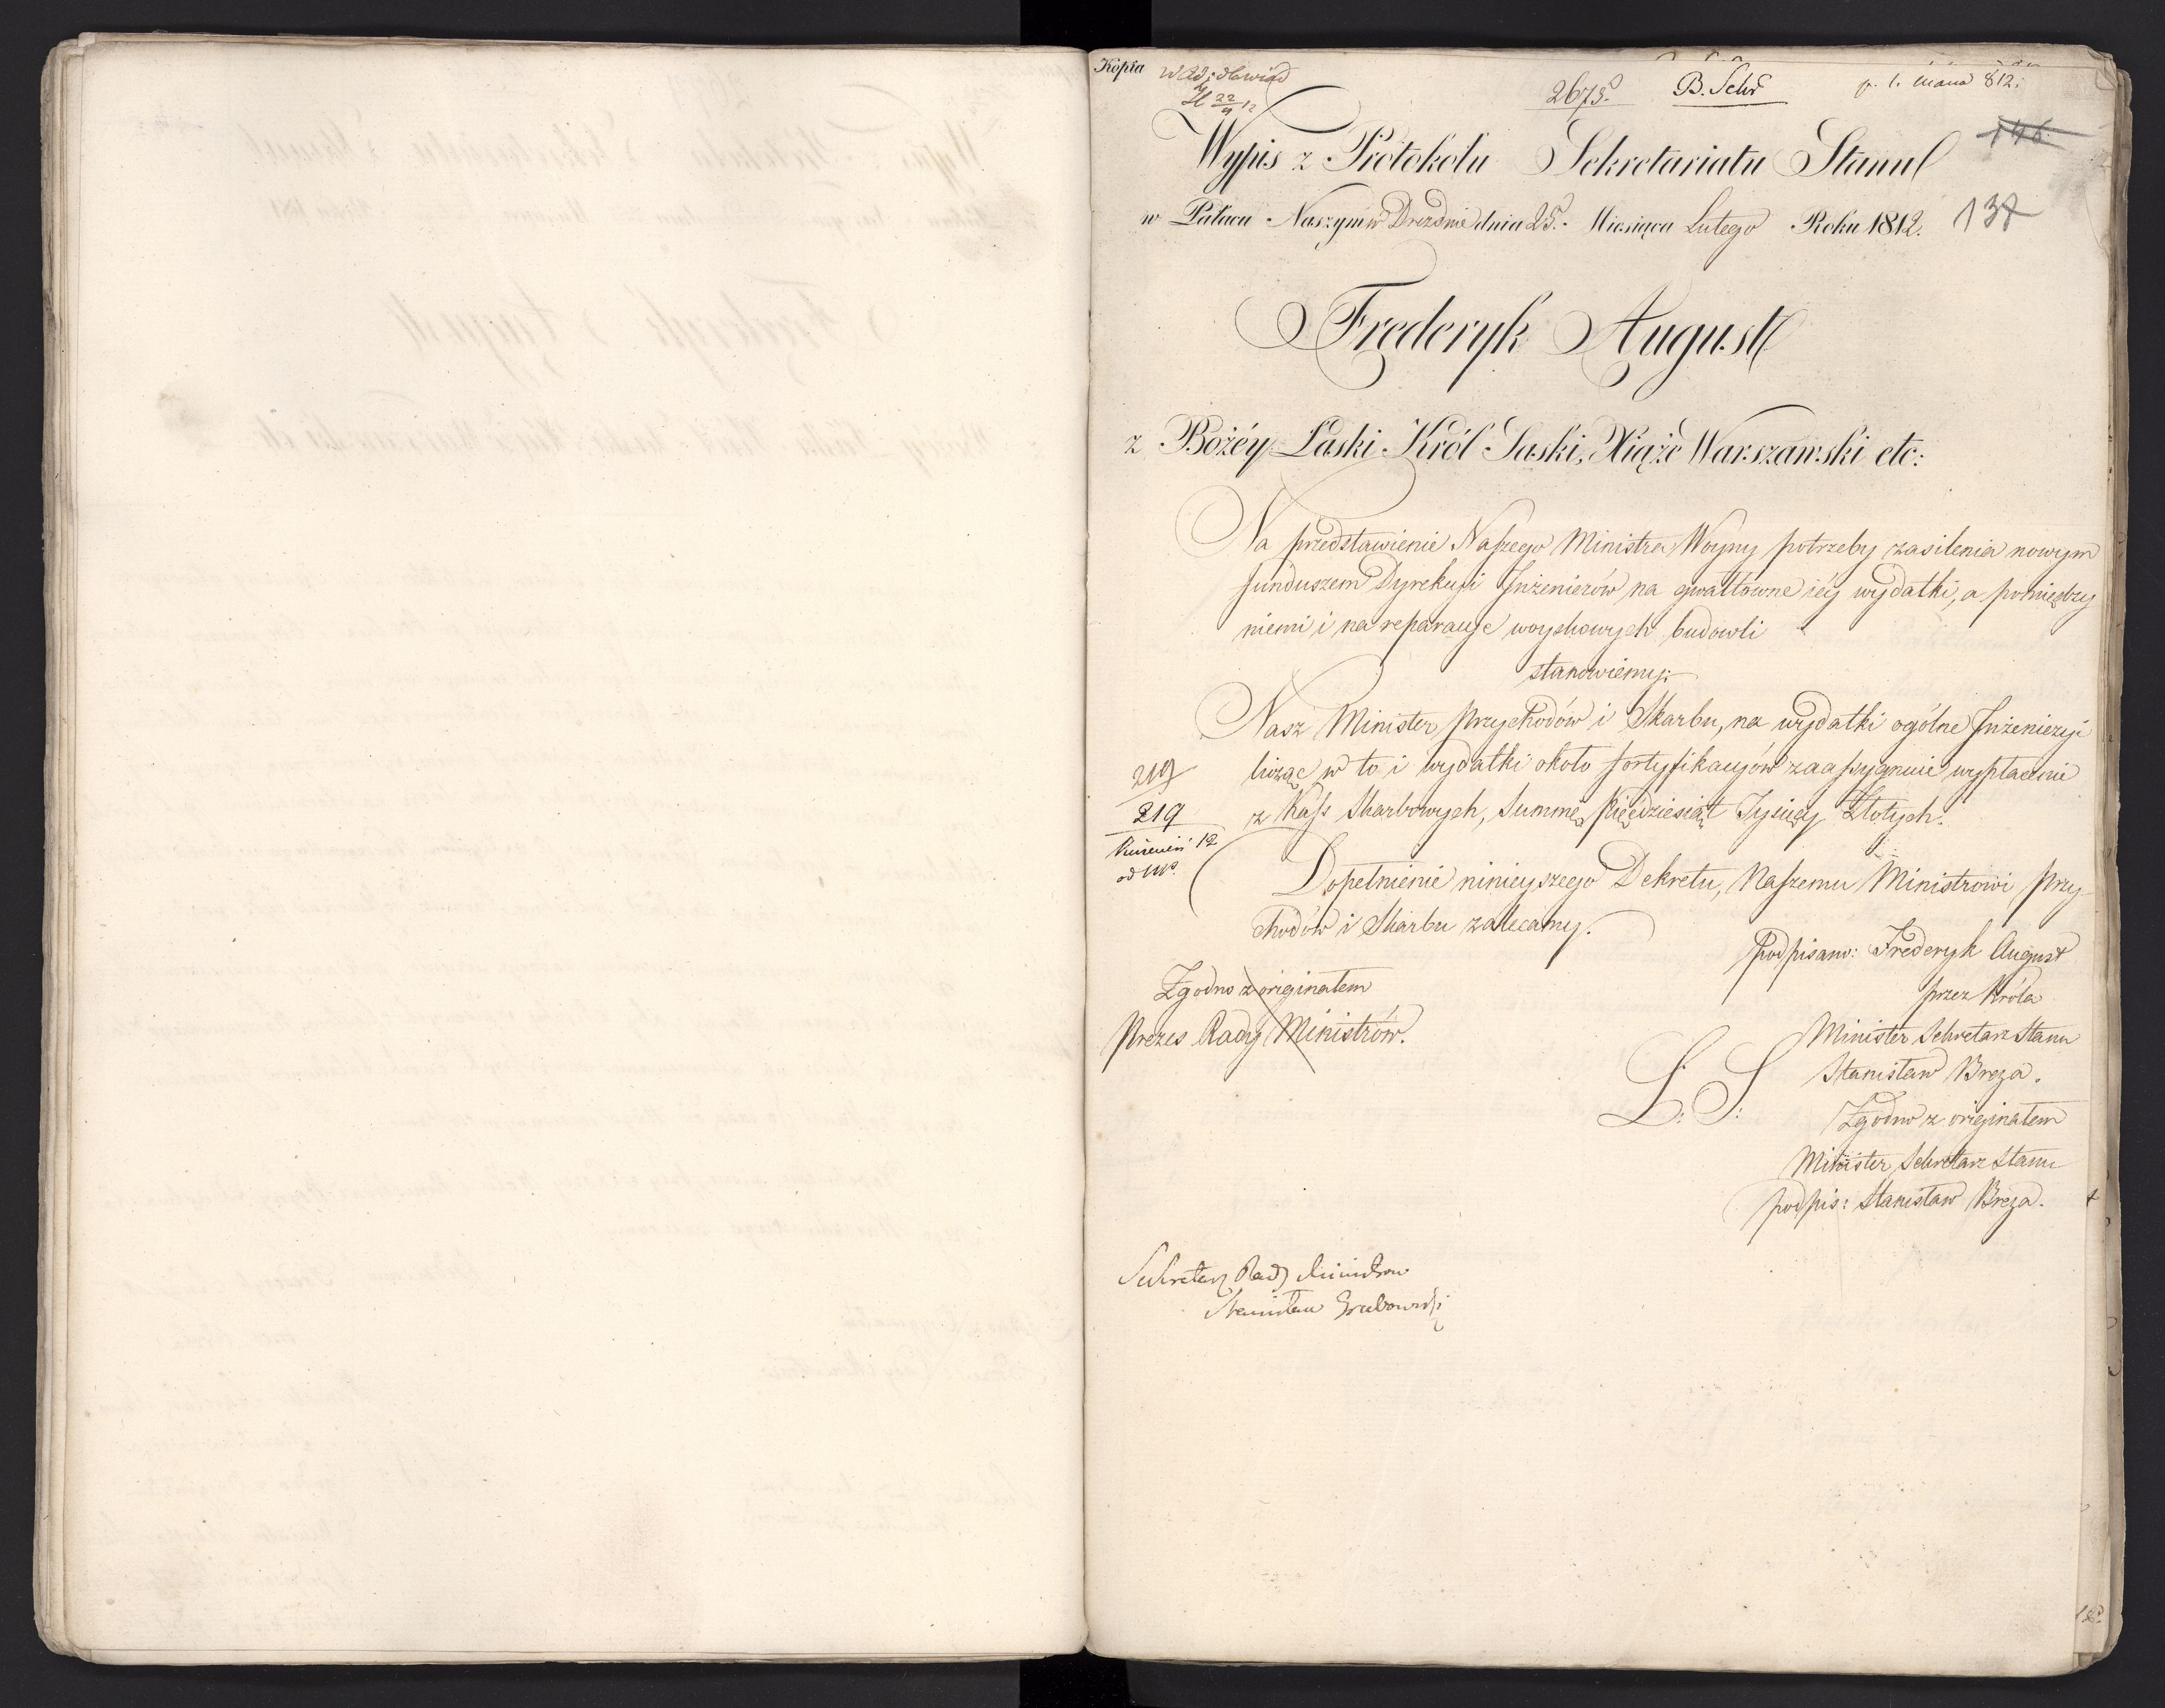 Kopia
2673.
B. Schr
p. 1. Marca 812.
Wypis z Protokołu Sekretariatu Stanu
146.
w Pałacu Naszym w Dreznie dnia 25. Miesiąca Lutego Roku 1812.
137
Frederyk August
z Bożéy Łaski Król Saski, Xiąże Warszawski etc:
Na przedstawienie Naszego Ministra Woyny potrzeby zasilenia nowym
funduszem Dyrekcyi Inżenierów na gwałtowne iéy wydatki, a pomiędzy
niemi i na reparacye woyskowych budowli
stanowiemy:
Nasz Minister Przychodów i Skarbu, na wydatki ogólne Inżenieryi
licząc w to i wydatki około fortyfikacyów zaassygnuie wypłacenie
z Kass Skarbowych, Summę Pięćdziesiąt Tysięcy Złotych.
219
219
12
Dopełnienie ninieyszego Dekretu, Naszemu Ministrowi Przy-
chodów i Skarbu zalecamy.
podpisano: Frederyk August
przez Króla
Minister Sekretarz Stanu
Stanisław Breza.
L: S:
Zgodno z originałem
Minister Sekretarz Stanu
podpis: Stanisław Breza.
Zgodno z originałem
Prezes Rady Ministrów.
Sekretarz Rady Ministrow
Stanisław Grabowski